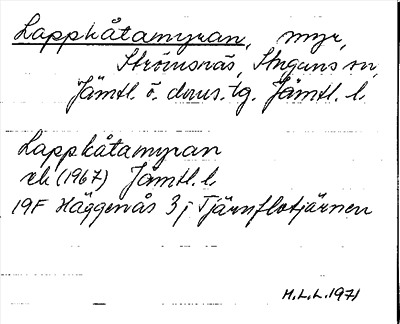 Lappkåtamyran, myr,
Strömsnäs, Stuguns sn,
Jämtl. ö. doms.tg. Jämtl. l.
Lappkåtamyran
ek (1967) Jämtl. l.
19F Häggenås 3j Tjärnflotjärnen
M.L.L. 1971